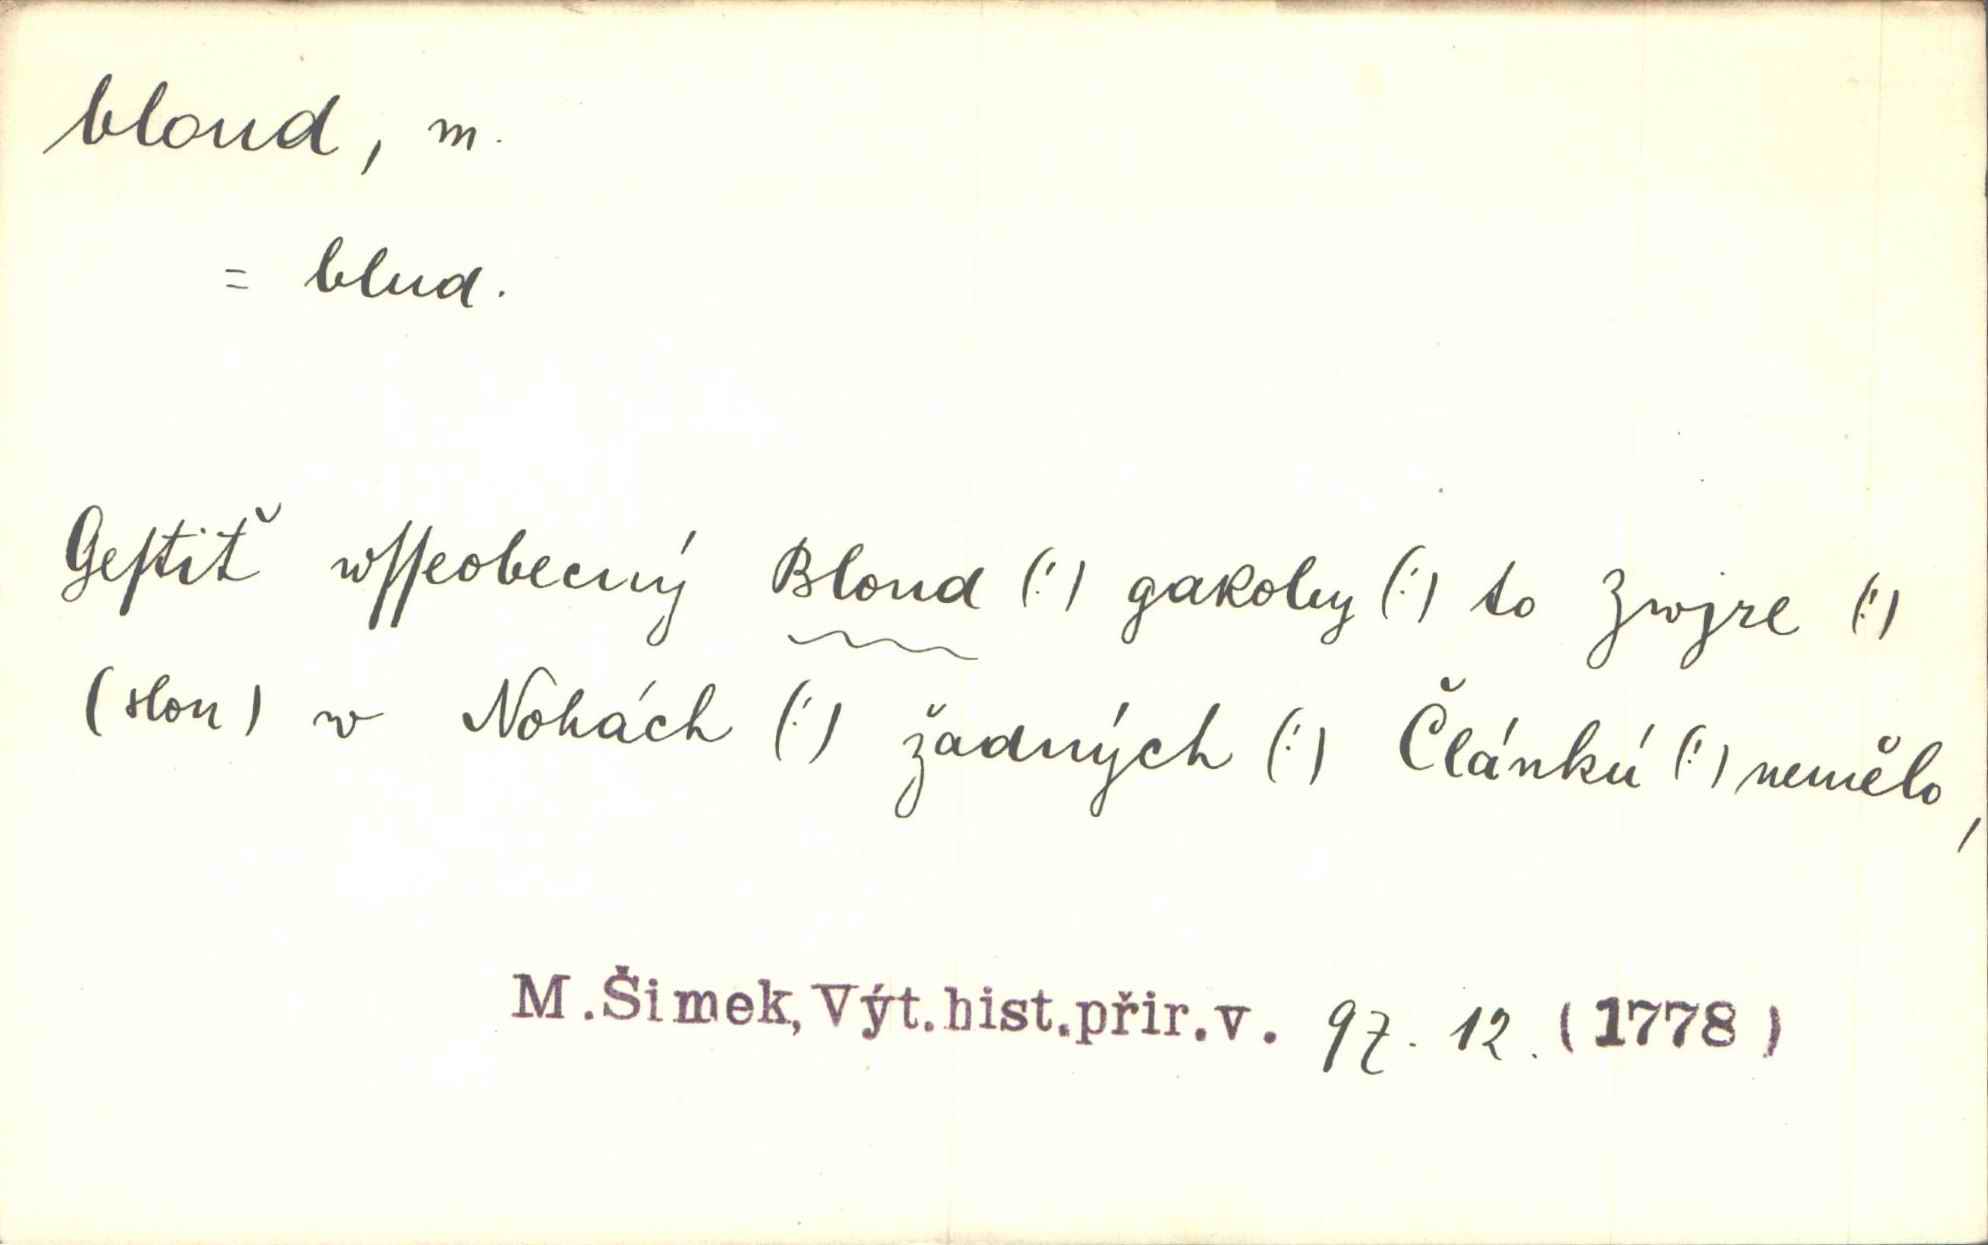 bloud, m.
= blud.
Geſtiť wſſeobecný Bloud (!) gakoby (!) to Zwjře (!)
(slon) w Nohách (!) žadných (!) Článkú (!) nemělo,
M.Šimek, Výt.hist.přir.v. 97. 12. (1778)